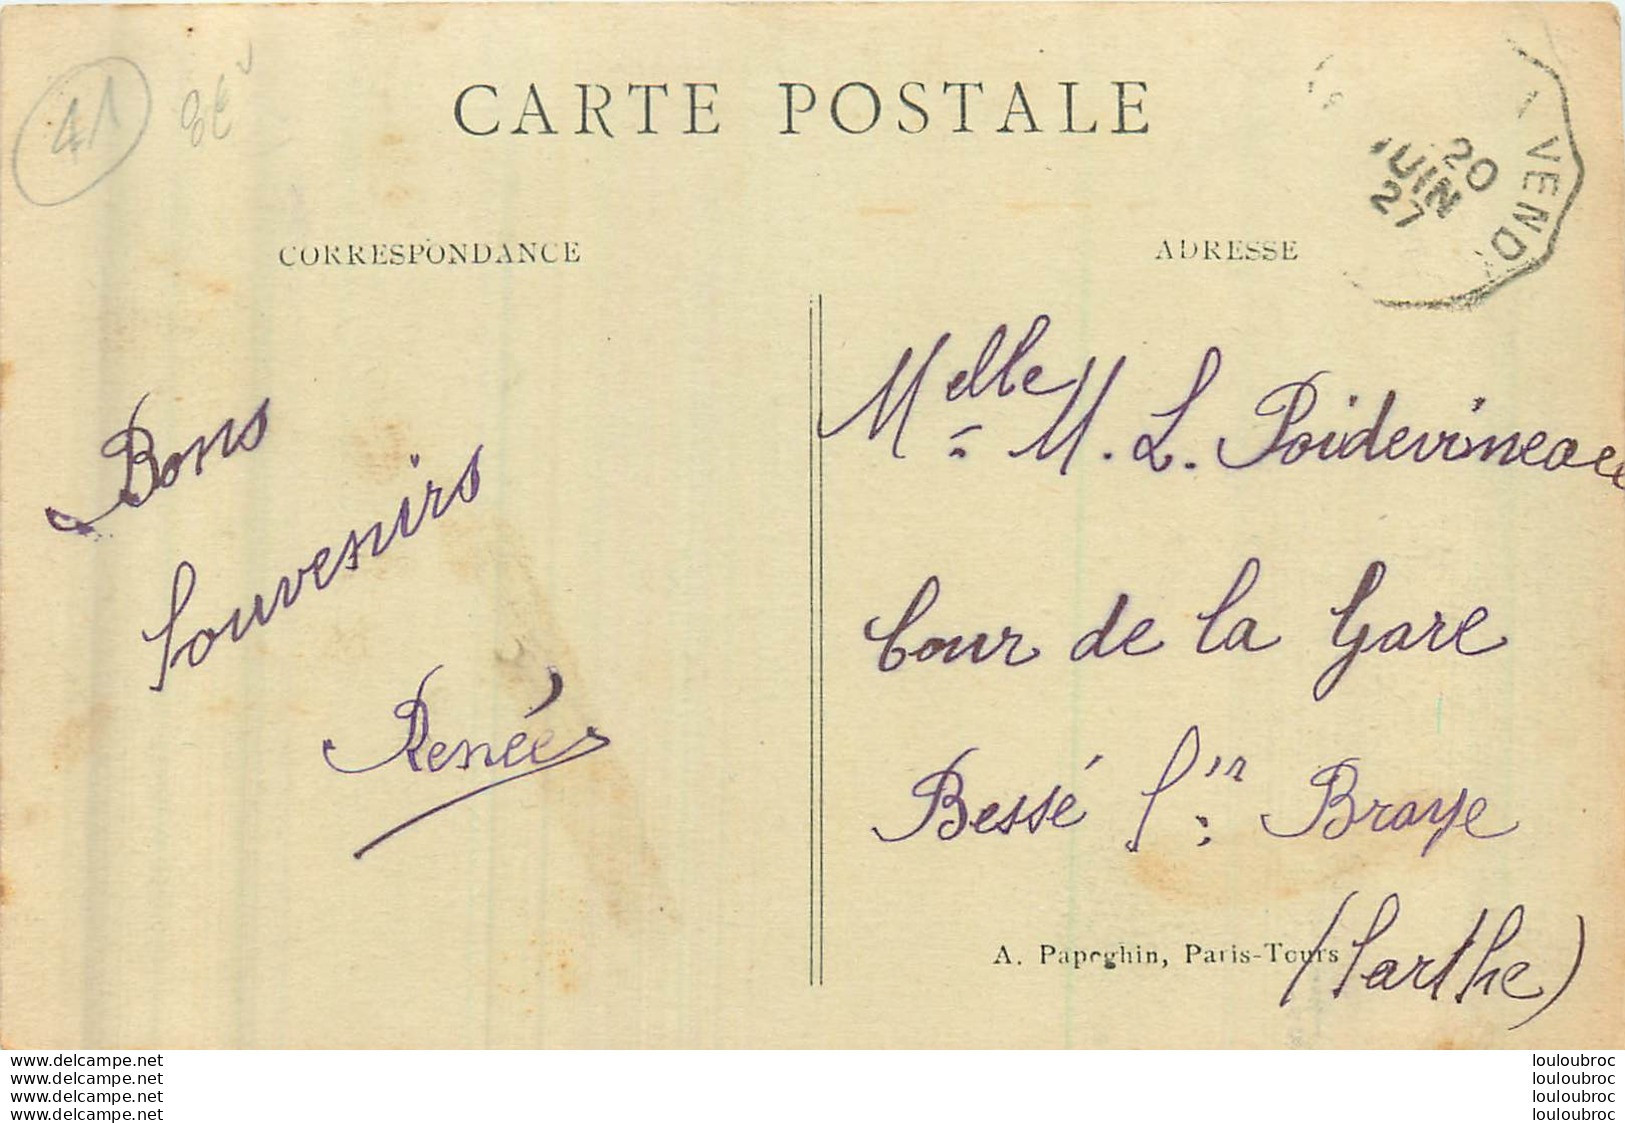 41
8€
CARTE POSTALE
VEND
20
JUIN
27
CORRESPONDANCE
ADRESSE
Bons
Souvenirs
Renée
Melle M. L. Poidevineau
Cour de la Gare
Bessé s/r Braye
(Sarthe)
A. Papeghin, Paris-Tours
www.delcampe.net
www.delcampe.net
www.delcampe.net
www.delcampe.net
louloubroc
louloubroc
louloubroc
louloubroc